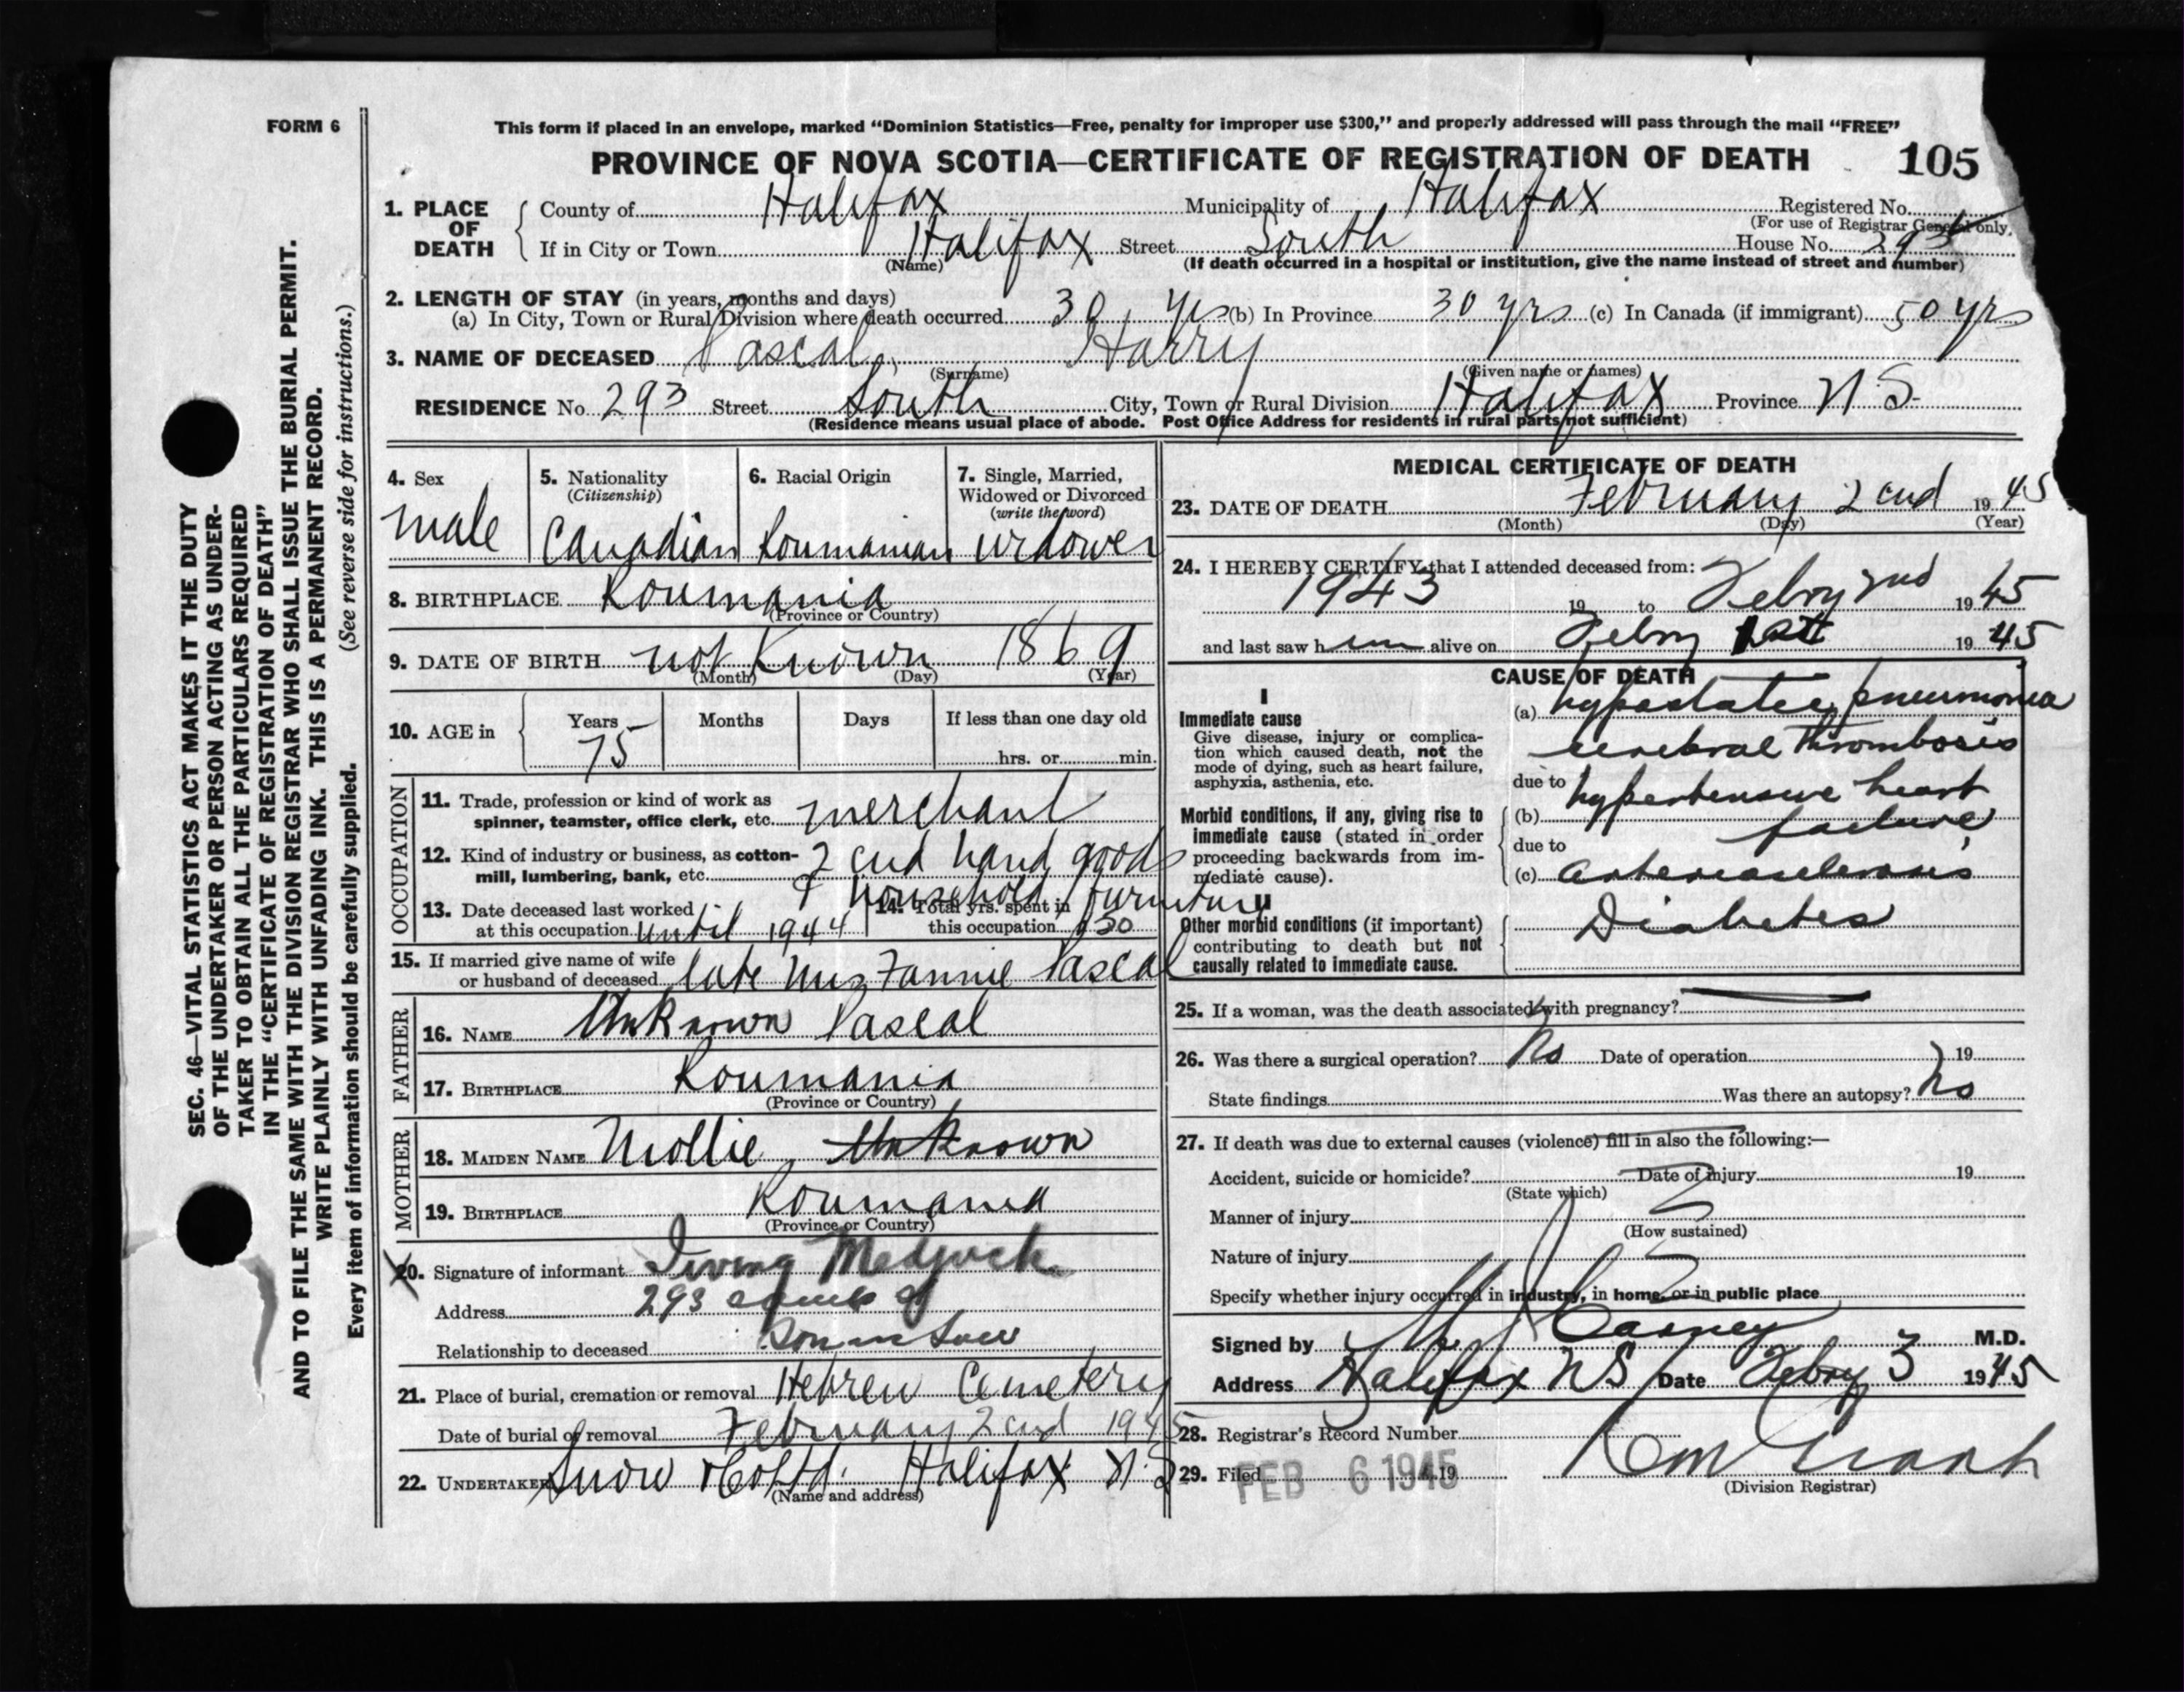 FORM 6
This form if placed in an envelope, marked "Dominion Statistics—Free, penalty for improper use $300," and properly addressed will pass through the mail "FREE"
PROVINCE OF NOVA SCOTIA—CERTIFICATE OF REGISTRATION OF DEATH 105
1. PLACE OF DEATH
County of Halifax Municipality of Halifax Registered No.
(For use of Registrar General only.
If in City or Town Halifax Street South House No. 293
(Name) (If death occurred in a hospital or institution, give the name instead of street and number)
2. LENGTH OF STAY (in years, months and days)
(a) In City, Town or Rural Division where death occurred 30 yrs (b) In Province 30 yrs (c) In Canada (if immigrant) 50 yrs
3. NAME OF DECEASED Pascal, Harry
(Surname) (Given name or names)
RESIDENCE No. 293 Street South City, Town or Rural Division Halifax Province N S
(Residence means usual place of abode. Post Office Address for residents in rural parts not sufficient)
4. Sex male
5. Nationality (Citizenship) Canadian
6. Racial Origin Roumanian
7. Single, Married, Widowed or Divorced (write the word) widower
8. BIRTHPLACE Roumania
(Province or Country)
9. DATE OF BIRTH not Known 1869
(Month) (Day) (Year)
10. AGE in Years 75 Months Days If less than one day old
hrs. or min.
OCCUPATION
11. Trade, profession or kind of work as
spinner, teamster, office clerk, etc. merchant
12. Kind of industry or business, as cotton-
mill, lumbering, bank, etc. 2cnd hand goods
& household furniture
13. Date deceased last worked
at this occupation until 1944
14. Total yrs. spent in
this occupation 30
15. If married give name of wife
or husband of deceased late Mrs Fannie Pascal
FATHER
16. NAME Unknown Pascal
17. BIRTHPLACE Roumania
(Province or Country)
MOTHER
18. MAIDEN NAME Mollie Unknown
19. BIRTHPLACE Roumania
(Province or Country)
20. Signature of informant Irving
Address 293
Relationship to deceased Son in Law
21. Place of burial, cremation or removal Hebrew Cemetery
Date of burial or removal February 2cnd 1945
22. UNDERTAKER Snow & Co Ltd. Halifax N.S
(Name and address)
MEDICAL CERTIFICATE OF DEATH
23. DATE OF DEATH February 2cnd 1945
(Month) (Day) (Year)
24. I HEREBY CERTIFY that I attended deceased from:
1943 19 to Febry 2nd 1945
and last saw him alive on Febry 1st 1945
CAUSE OF DEATH
I
Immediate cause
Give disease, injury or complica-
tion which caused death, not the
mode of dying, such as heart failure,
asphyxia, asthenia, etc.
(a) hypostatic pneumonia
cerebral thrombosis
due to
Morbid conditions, if any, giving rise to
immediate cause (stated in order
proceeding backwards from im-
mediate cause).
(b) hypertensive heart
failure
due to
(c) arteriosclerosis
II
Other morbid conditions (if important)
contributing to death but not
causally related to immediate cause.
Diabetes
25. If a woman, was the death associated with pregnancy?
26. Was there a surgical operation? No Date of operation 19
State findings Was there an autopsy? No
27. If death was due to external causes (violence) fill in also the following:—
Accident, suicide or homicide? Date of injury 19
(State which)
Manner of injury
(How sustained)
Nature of injury
Specify whether injury occurred in industry, in home, or in public place
Signed by M.D.
Address Halifax NS Date Febry 3 1945
28. Registrar's Record Number
29. Filed FEB 6 1945 19
(Division Registrar)
SEC. 46—VITAL STATISTICS ACT MAKES IT THE DUTY
OF THE UNDERTAKER OR PERSON ACTING AS UNDER-
TAKER TO OBTAIN ALL THE PARTICULARS REQUIRED
IN THE "CERTIFICATE OF REGISTRATION OF DEATH"
AND TO FILE THE SAME WITH THE DIVISION REGISTRAR WHO SHALL ISSUE THE BURIAL PERMIT.
WRITE PLAINLY WITH UNFADING INK. THIS IS A PERMANENT RECORD.
Every item of information should be carefully supplied. (See reverse side for instructions.)